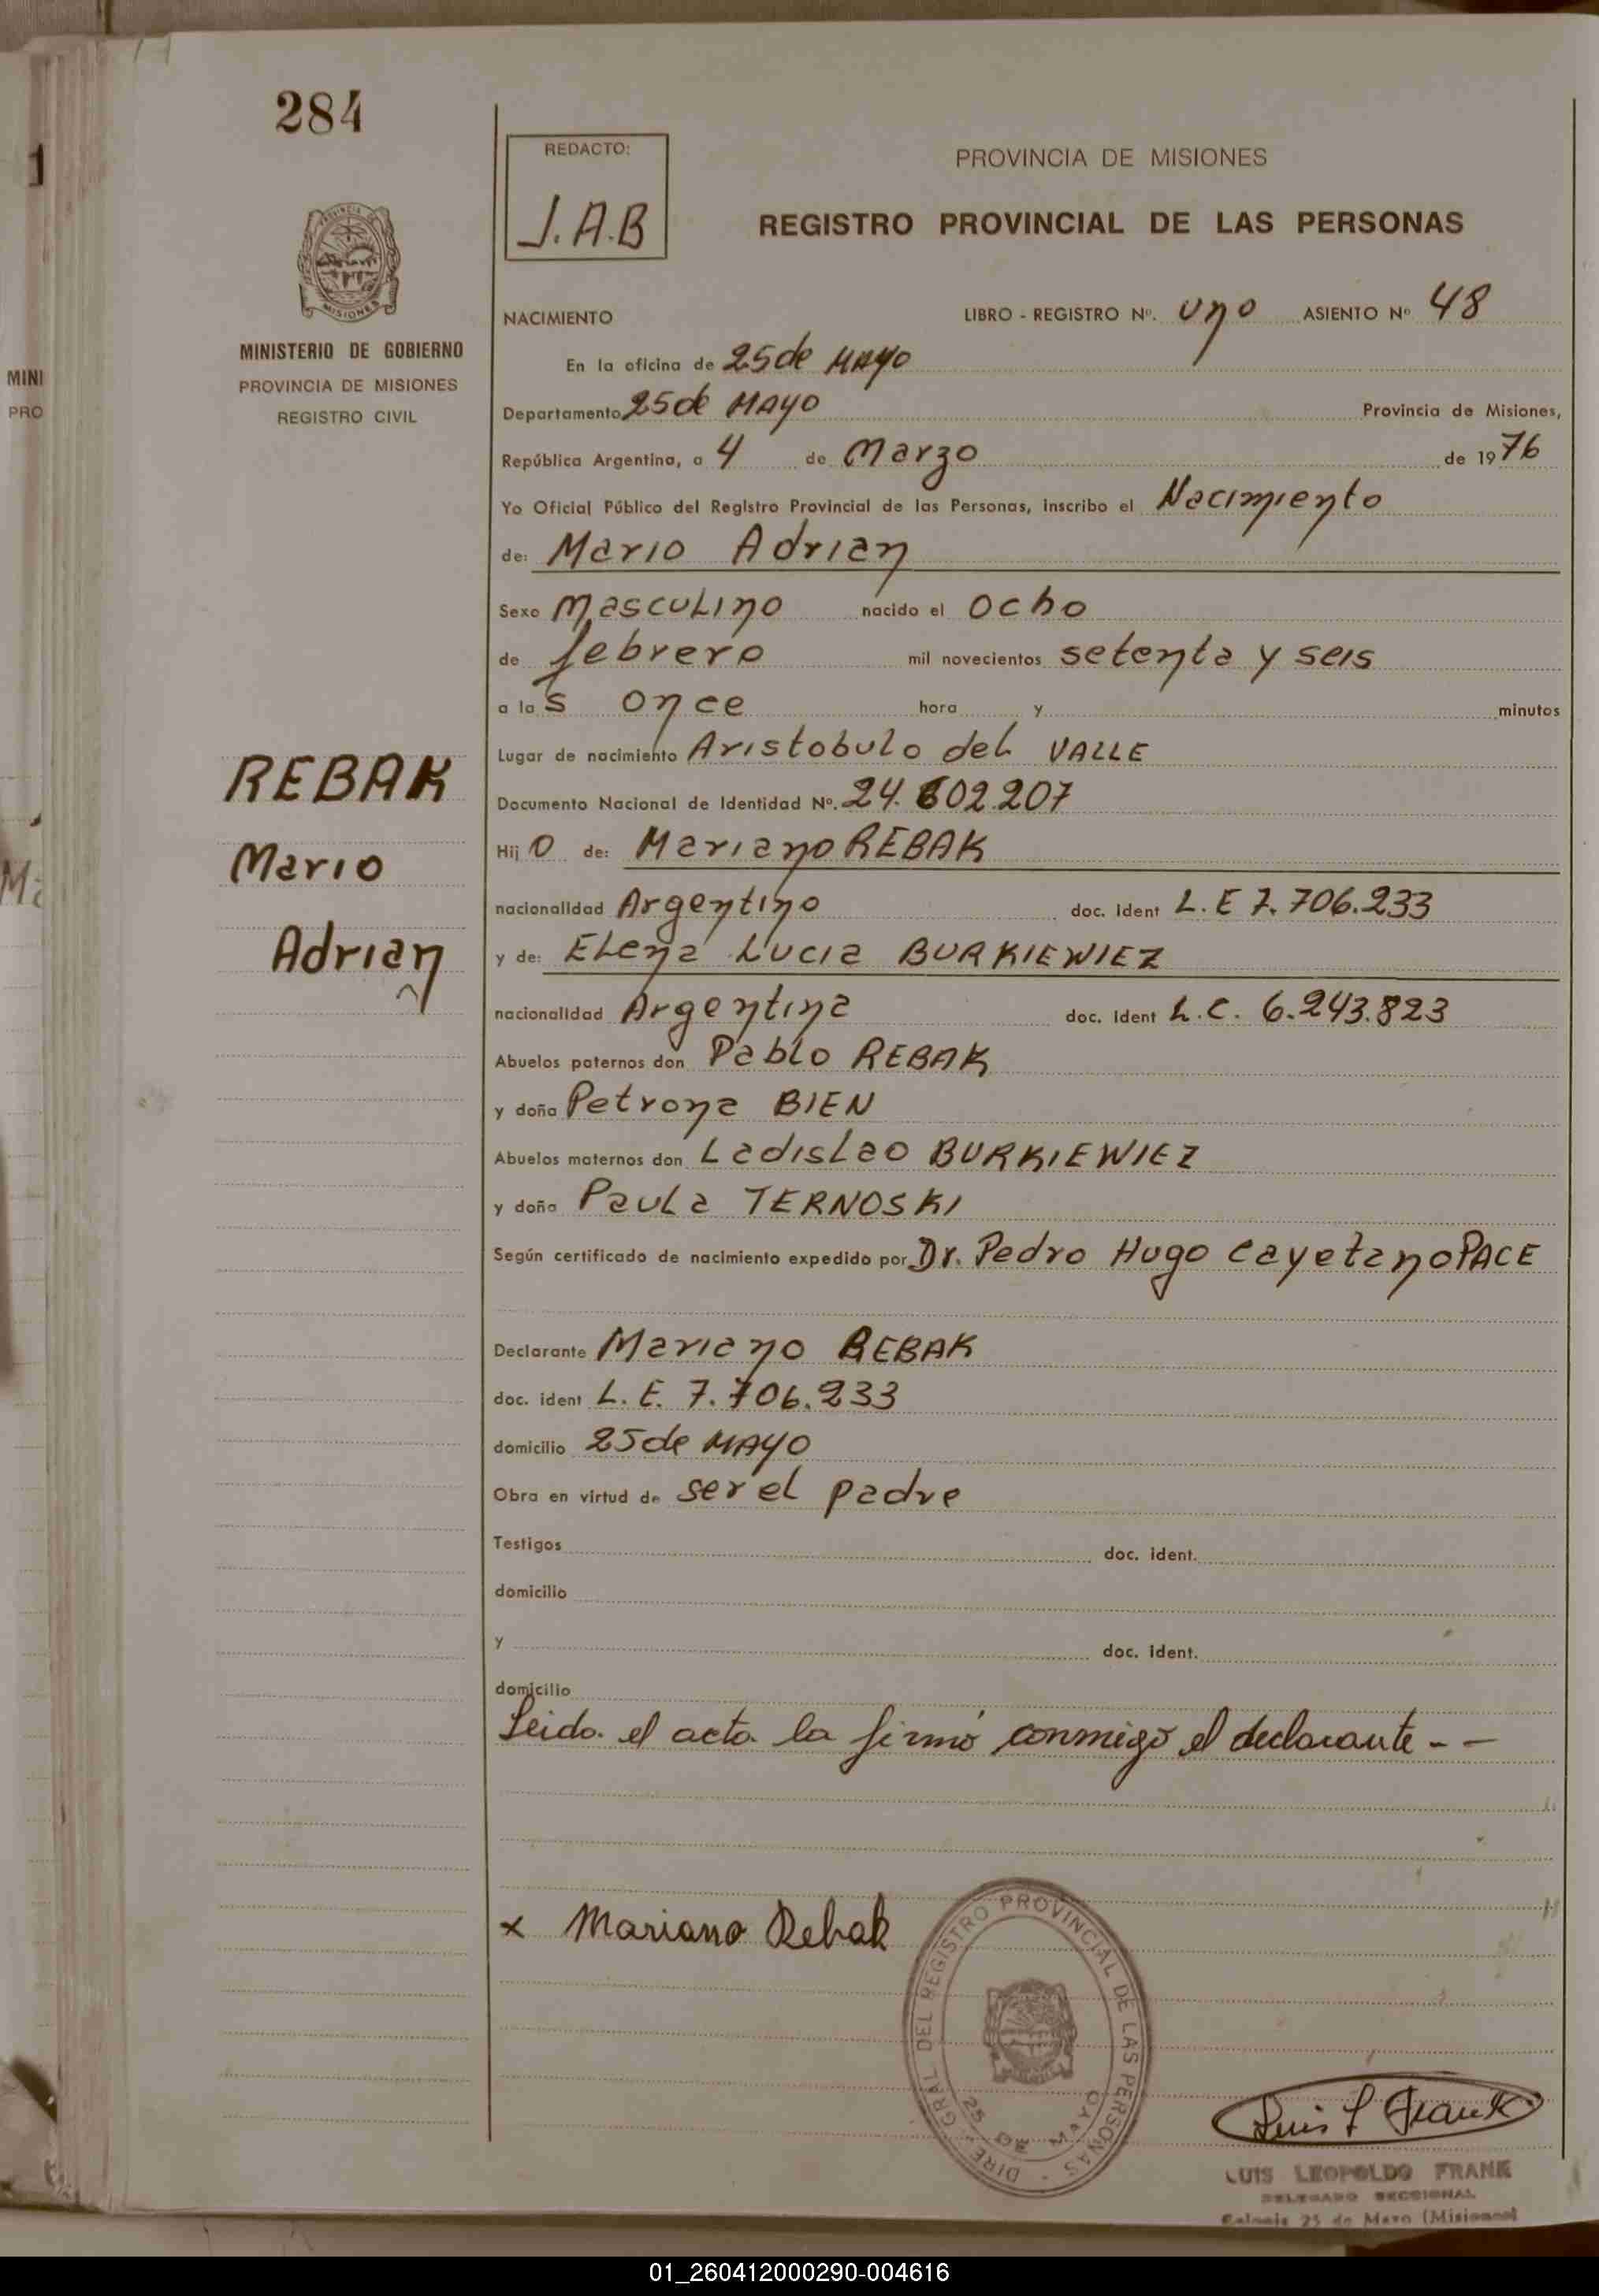 284
REDACTO:
J.A.B
PROVINCIA DE MISIONES
REGISTRO PROVINCIAL DE LAS PERSONAS
PROVINCIA DE
MISIONES
MINISTERIO DE GOBIERNO
PROVINCIA DE MISIONES
REGISTRO CIVIL
MINI
PRO
NACIMIENTO LIBRO - REGISTRO Nº. Uno ASIENTO Nº 48
En la oficina de 25 de MAYO
Departamento 25 de MAYO Provincia de Misiones,
República Argentina, a 4 de Marzo de 1976
Yo Oficial Público del Registro Provincial de las Personas, inscribo el Nacimiento
de: Mario Adrian
Sexo Masculino nacido el ocho
de febrero mil novecientos setenta y seis
a las once hora y minutos
Lugar de nacimiento Aristobulo del VALLE
REBAK
Documento Nacional de Identidad Nº. 24.602.207
Mario
Hijo de: Mariano REBAK
nacionalidad Argentino doc. ident L.E 7.706.233
Adrian
y de: Elena Lucia BURKIEWIEZ
nacionalidad Argentina doc. ident L.C. 6.243.823
Abuelos paternos don Pablo REBAK
y doña Petrona BIEN
Abuelos maternos don Ladislao BURKIEWIEZ
y doña Paula TERNOSKI
Según certificado de nacimiento expedido por Dr. Pedro Hugo Cayetano PACE
Declarante Mariano REBAK
doc. ident L.E. 7.706.233
domicilio 25 de MAYO
Obra en virtud de ser el padre
Testigos doc. ident.
domicilio
y doc. ident.
domicilio
Leido el acta la firmó conmigo el declarante - -
x Mariano Rebak
DIRE. GRAL DEL REGISTRO PROVINCIAL DE LAS PERSONAS -
25 DE MAYO
Luis L Frank
LUIS LEOPOLDO FRANK
DELEGADO SECCIONAL
Colonia 25 de Mayo (Misiones)
01_260412000290-004616